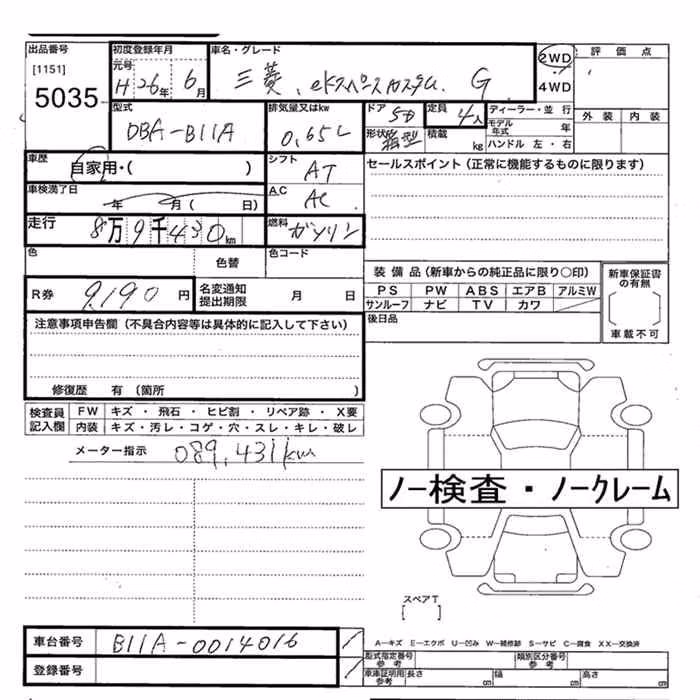 出品番号 初度登録年月 車名・グレード 2WD 評価点
[1151] 元号 4WD
5035 H26年 6月 三菱、eKスペースカスタム G 外装 内装
型式 排気量又はkw ドア 5D 定員 4人 ディーラー・並行
DBA-B11A 0.65L 形状 箱型 積載 kg モデル年式 年
ハンドル 左・右
車歴 自家用・( ) シフト AT セールスポイント(正常に機能するものに限ります)
車検満了日 年 月( 日) A.C AC
走行 8万9千430km 燃料 ガソリン
色 色替 色コード
装備品(新車からの純正品に限り○印) 新車保証書の有無
R券 9,190円 名変通知提出期限 月 日 PS PW ABS エアB アルミW
サンルーフ ナビ TV カワ
注意事項申告欄(不具合内容等は具体的に記入して下さい) 後日品 車載不可
修復歴 有(箇所 )
検査員記入欄 FW キズ・飛石・ヒビ割・リペア跡・X要
内装 キズ・汚レ・コゲ・穴・スレ・キレ・破レ
メーター指示 089,431km
ノー検査・ノークレーム
スペアT
[ ]
車台番号 B11A-0014016 A-キズ E-エクボ U-凹み W-補修跡 S-サビ C-腐食 XX-交換済
型式指定番号 参考 類別区分番号 参考
登録番号 車庫証明用 参考 長さ cm 幅 cm 高さ cm